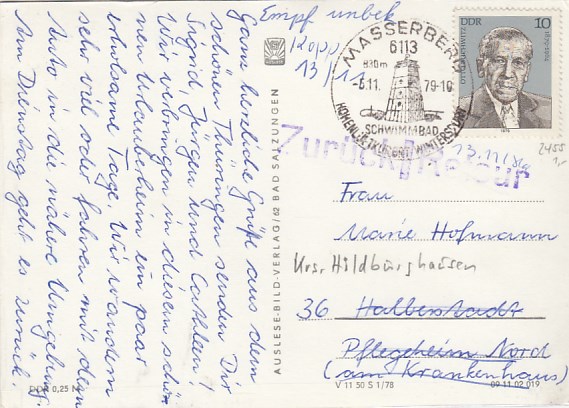 Ganz herzliche Grüße aus dem
schönen Thüringen senden Dir
Sigrid, Jürgen und Cathleen!
Wir verbringen in diesem schö-
nen Urlauberheim ein paar
erholsame Tage. Wir wandern
sehr viel oder fahren mit dem
Auto in die nähere Umgebung.
Am Dienstag geht es zurück.
DDR 0,25 M
AUSLESE-BILD-VERLAG/62 BAD SALZUNGEN
Empf unbek
Kopp
13/11
MASSERBERG
6113
830m
-5.11.
79-10
SCHWIMMBAD
HÖHENLUFTKURORT WINTERSPORT
DDR 10
Zurück Retour
13.11/
2455
1,-
Frau
Marie Hofmann
Krs. Hildburghausen
36 Halberstadt
Pflegeheim Nord
(am Krankenhaus)
V 11 50 S 1/78
09 11 02 019